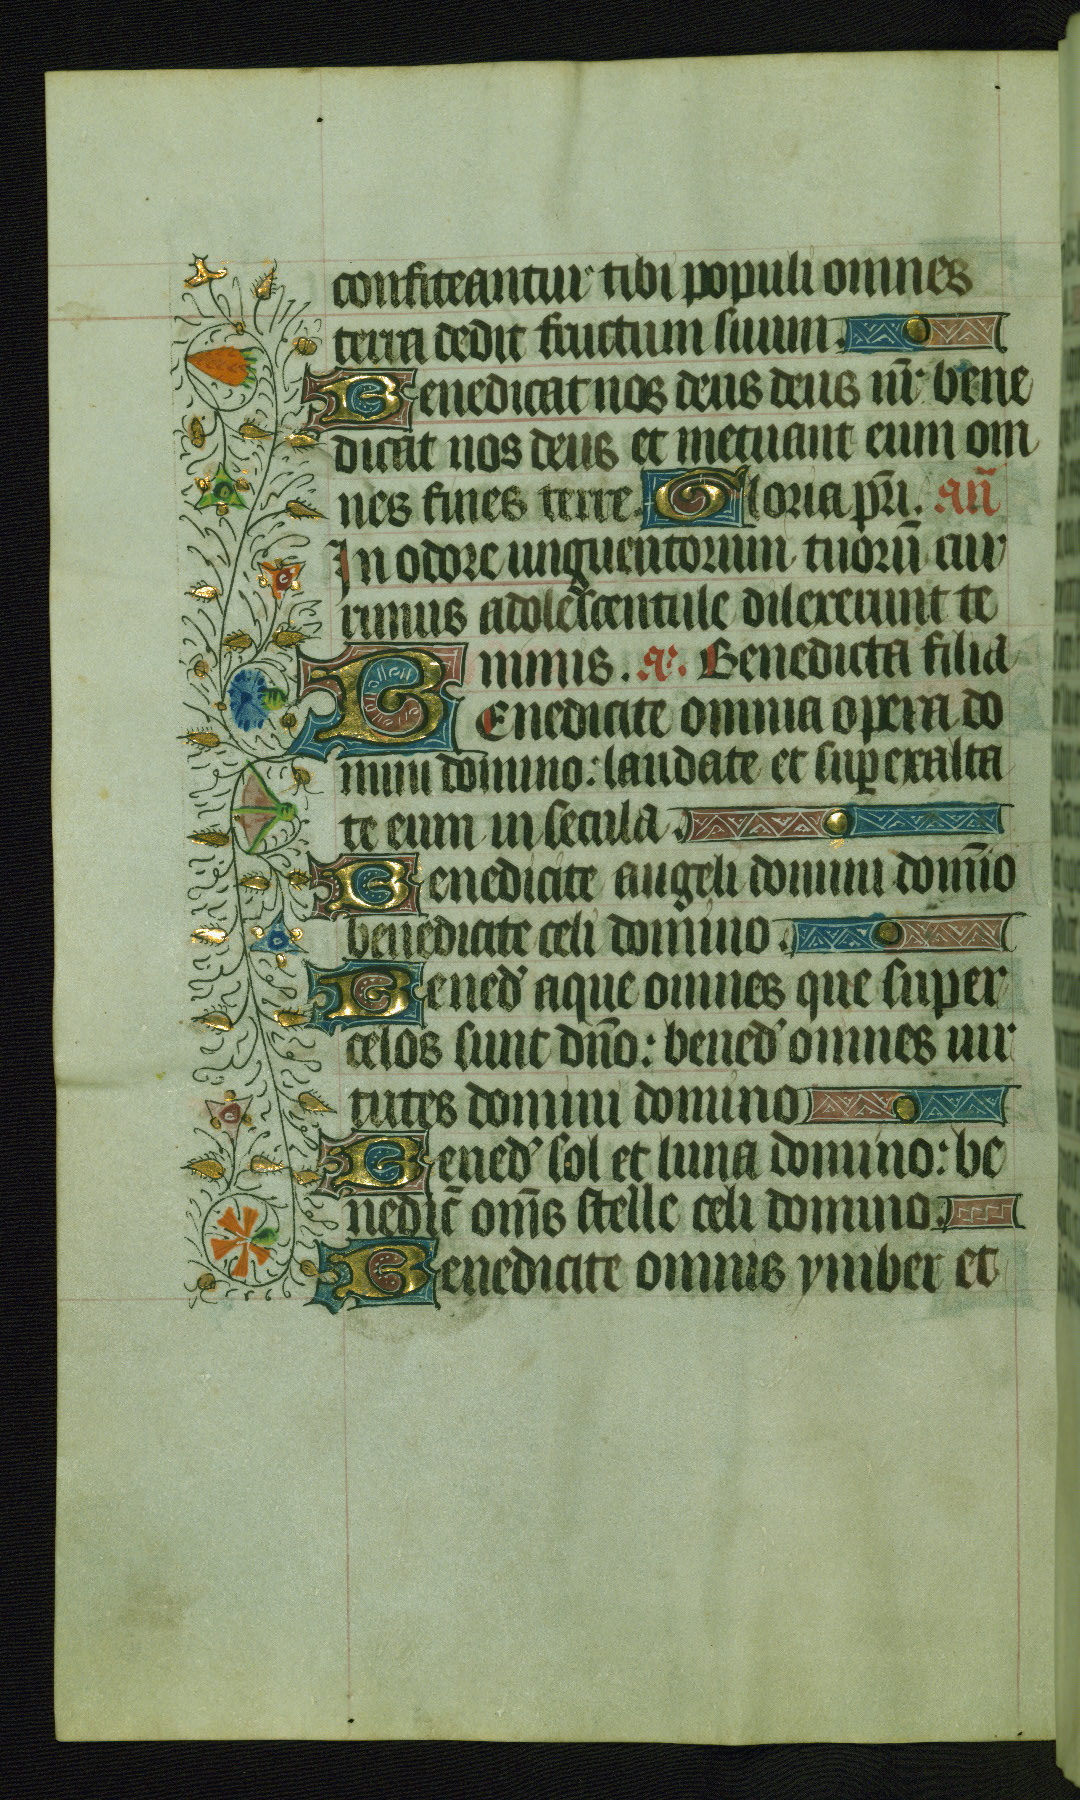 confiteantur tibi populi omnes
terra dedit fructum suum.
Benedicat nos deus deus nr̄ bene
dicat nos deus et metuant eum om
nes fines terre. Gloria pr̄i. an̄
In odore unguentorum tuorū cur
rimus adolescentule dilexerunt te
nimis. a. Benedicta filia
BEnedicite omnia opera do
mini domino: laudate et superexalta
te eum in secula.
Benedicite angeli domini dom̄io
benedicite celi domino.
Bened' aque omnes que super
celos sunt dn̄o: bened' omnes uir
tutes domini domino
Bened' sol et luna domino: be
nedic̄ om̄s stelle celi domino.
Benedicite omnis ymber et